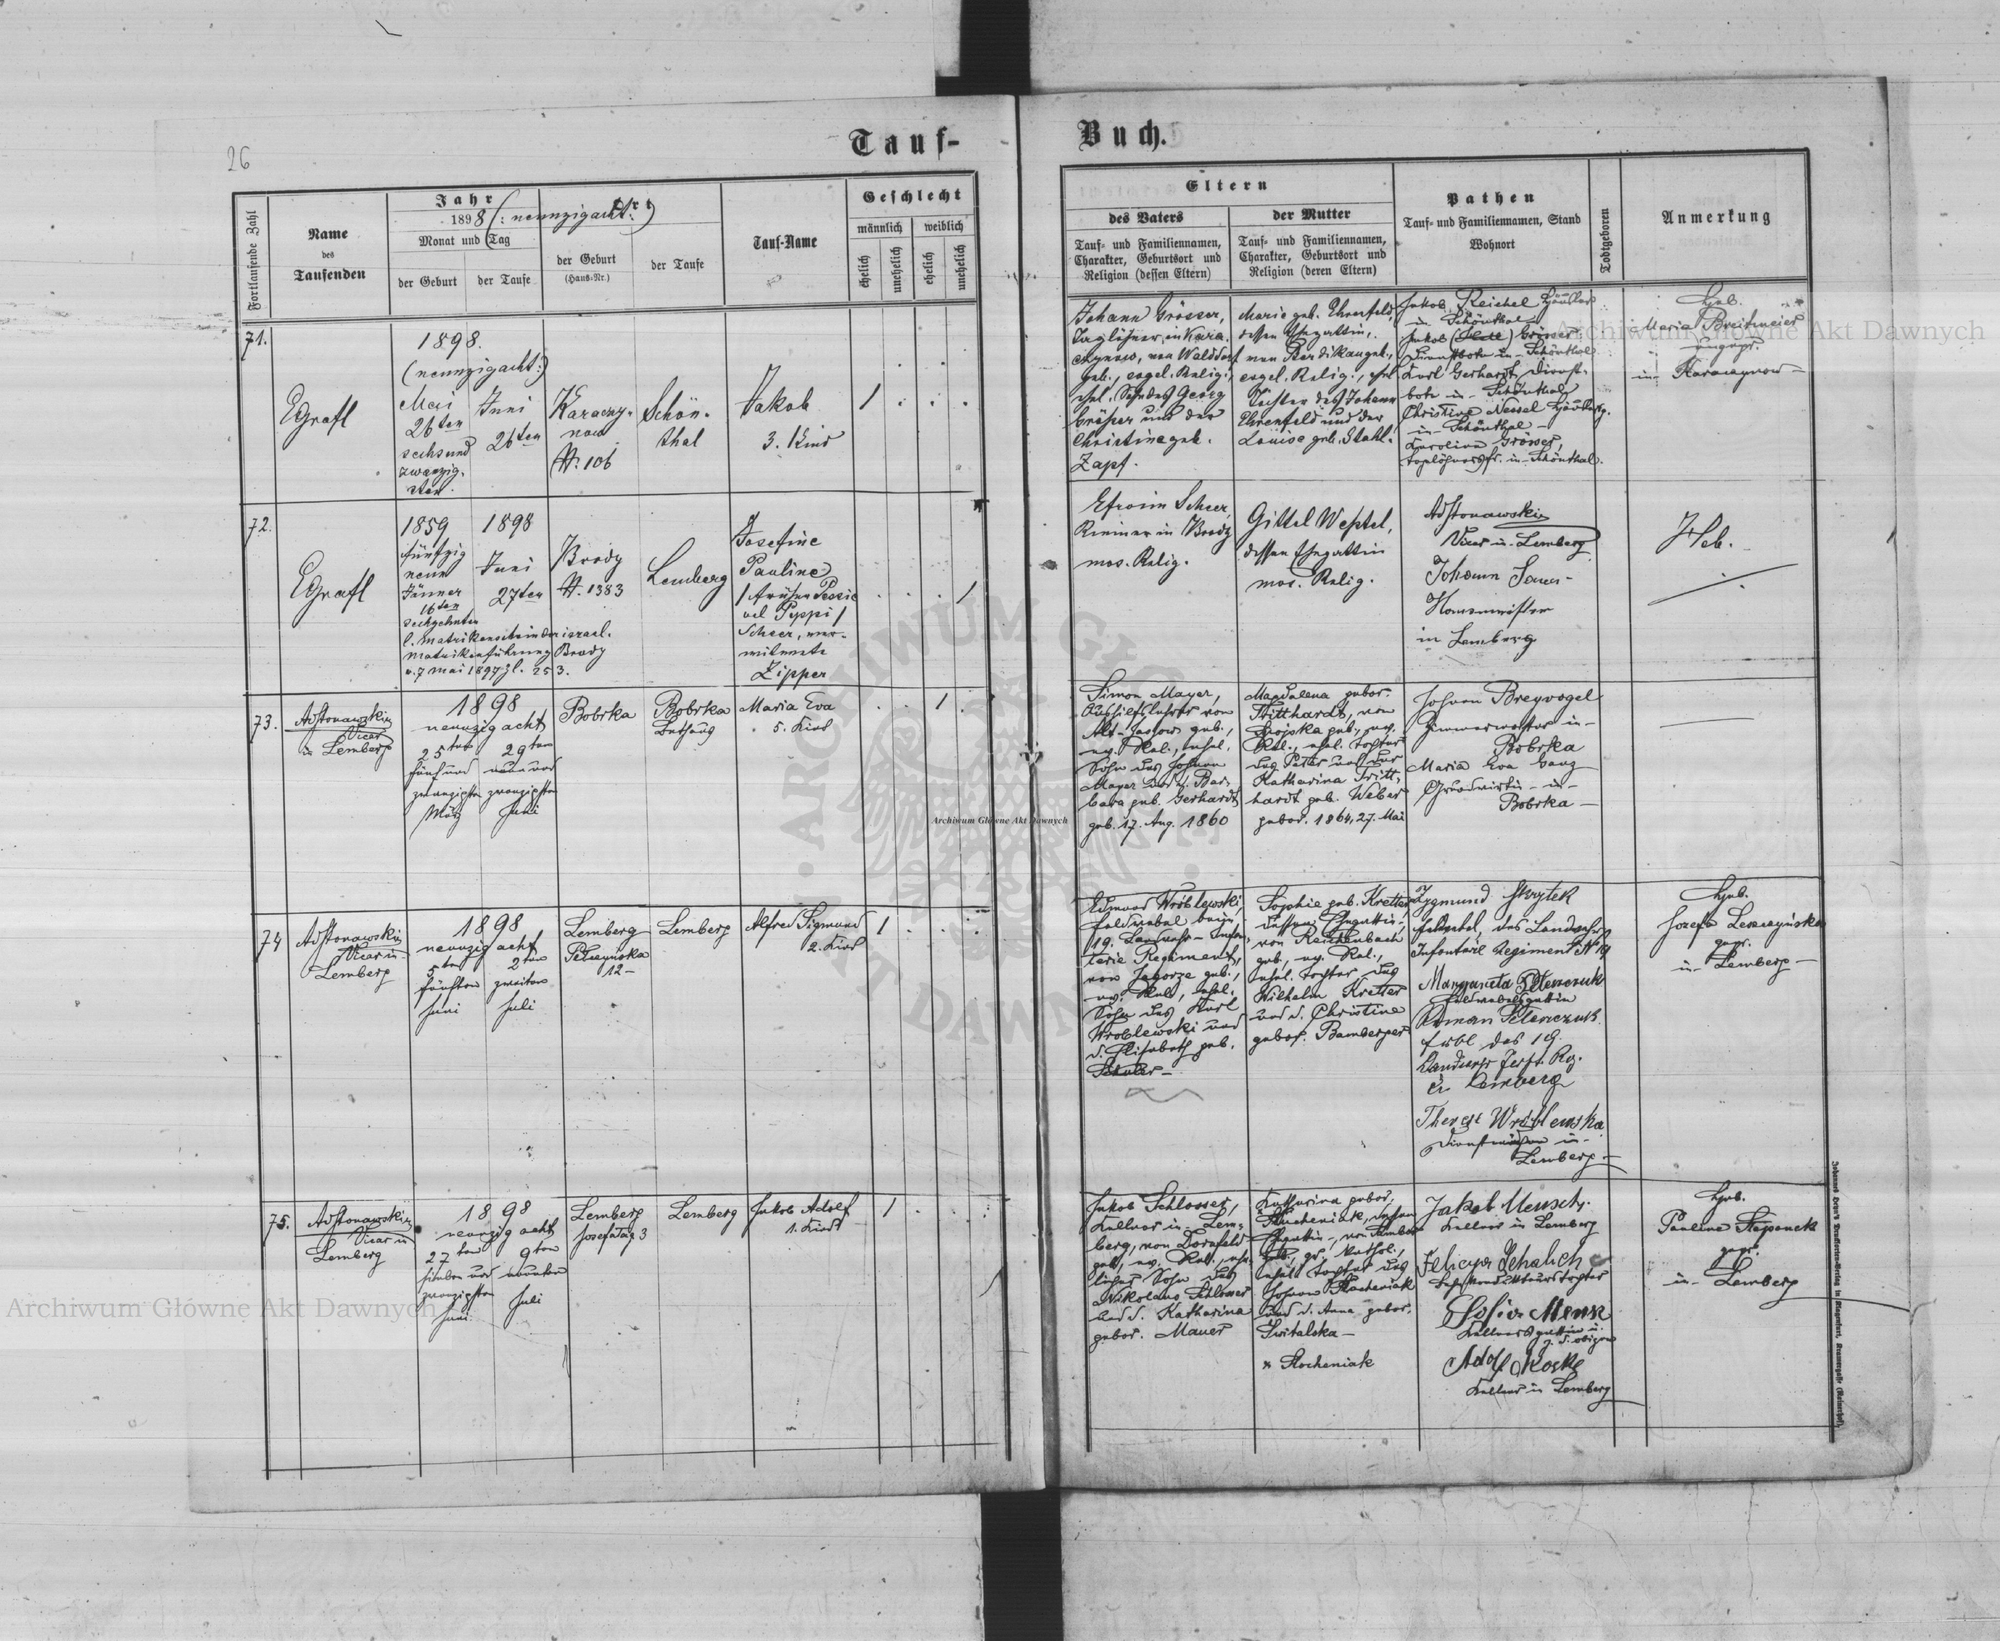 26
Tauf-
Buch.
Fortlaufende Zahl
Name
des
Taufenden
Jahr
1898 (: neunzigacht :)
Monat und Tag
der Geburt
der Taufe
Ort
der Geburt
(Haus-Nr.)
der Taufe
Tauf-Name
Geschlecht
männlich
weiblich
ehelich
unehelich
ehelich
unehelich
Eltern
des Vaters
Tauf- und Familiennamen,
Charakter, Geburtsort und
Religion (dessen Eltern)
der Mutter
Tauf- und Familiennamen,
Charakter, Geburtsort und
Religion (deren Eltern)
Pathen
Tauf- und Familiennamen, Stand
Wohnort
Todtgeboren
Anmerkung
71.
EGrafl
1898.
(neunzigacht:)
Mai
26ten
sechsund
zwanzig.
sten.
Juni
26ten
Karaczy-
now
N. 106
Schön-
thal
Jakob
3. Kind
1
Johann Grösser,
Taglöhner in Kara-
czynow, von Walddorf
geb., evgel. Relig.,
ehel. Sohn des Georg
Grösser und der
Christine geb.
Zapf.
Marie geb. Ehrenfeld,
dessen Ehegattin,
evgel. Relig., ehel.
Tochter des Johann
Ehrenfeld und der
Louise geb. Stahl.
Jakob Reichel Häusler
in Schönthal
Jakob Grösser
Dienstbote in Schönthal
Karl Gerhardt, Dienst-
bote in Schönthal
Christine Nessel
in Schönthal
Karoline Grösser,
in Schönthal.
Heb.
Maria Breitmeier
ungepr.
in Karaczynow
72.
EGrafl
1859
fünfzig
neun
Jänner
16ten
sechzehnten
1898
Juni
27ten
l. Matrikenschein der israel.
Matrikenführung Brody
v. 7 Mai 1897 Zl. 253.
Brody
N. 1383
Lemberg
Josefine
Pauline
/ früher Pessie
vel Peppi /
Scheer, ver-
witwete
Zipper
1
Efroim Scheer,
Riemer in Brody
mos. Relig.
Gittel
dessen Ehegattin
mos. Relig.
AdStonawski
Vicar in Lemberg
Johann
Hausmeister
in Lemberg
Heb.
73.
AdStonawski
Vicar
in Lemberg
1898
neunzig acht
25ten
fünfund
zwanzigsten
März
29ten
neun und
zwanzigsten
Juni
Bobrka
Bobrka
Bethaus
Maria Eva
5. Kind
1
Simon Mayer,
Aushilfslehrer von
Alt-Jazow geb.,
ev. Rel., ehel.
Sohn des Johann
Mayer und d. Bar-
bara geb. Gerhardt
geb. 17. Aug. 1860
Magdalena gebor.
Tritthardt, von
geb., ev.
Rel., ehel. Tochter
des Peter und der
Katharina Tritt-
hardt geb. Weber
gebor. 1864, 27. Mai
Johann Breyvogel
Zimmermeister in
Bobrka
Maria Eva Ganz
Grundwirtin in
Bobrka
74
AdStonawski
Vicar in
Lemberg
1898
neunzig acht
5ten
fünften
Juni
2ten
zweiten
Juli
Lemberg
Pelczyńska
12
Lemberg
Alfred Sigmund
2. Kind
1
Edmund Wróblewski,
Feldwebel beim
19. Landwehr-Infan-
terie Regiment,
von Jaworze geb.,
ev. Rel., ehel.
Sohn des Karl
Wroblewski und
d. Elisabeth geb.
Sophie geb. Kretter
dessen Ehegattin,
von Reichenbach
geb., ev. Rel.,
ehel. Tochter des
Wilhelm Kretter
und d. Christine
gebor. Bamberger
Zygmund
Feldwebel, des Landwehr
Infanterie Regiment N 19
Margareta Pelenczuk
Feldwebelsgattin
Roman Pelenczuk
Fwbl des 19.
in Lemberg
Therese Wróblewska
in
Lemberg
Heb.
Josefa Leszczyńska
gepr.
in Lemberg
75.
AdStonawski
Vicar in
Lemberg
1898
neunzig acht
27ten
sieben und
zwanzigsten
Juni
9ten
neunten
Juli
Lemberg
3
Lemberg
Jakob Adolf
1. Kind
1
Jakob Schlosser,
Kellner in Lem-
berg, von Dornfeld
geb., ev. Rel., ehe-
licher Sohn des
Nikolaus Schlosser
und d. Katharina
gebor. Mauer
Katharina gebor.
dessen
Ehegattin, von
geb., gr. kathol.,
ehel. Tochter des
Johann Stocheniak
und d. Anna gebor.
Switalska
x Stocheniak
Jakob Mensch
Kellner in Lemberg
Felicya Schalich
Zofia Mensz
Kellnersgattin
Adolf Koske
Kellner in Lemberg
Heb.
Pauline Steponek
gepr.
in Lemberg
Archiwum Główne Akt Dawnych
Archiwum Główne Akt Dawnych
Archiwum Główne Akt Dawnych